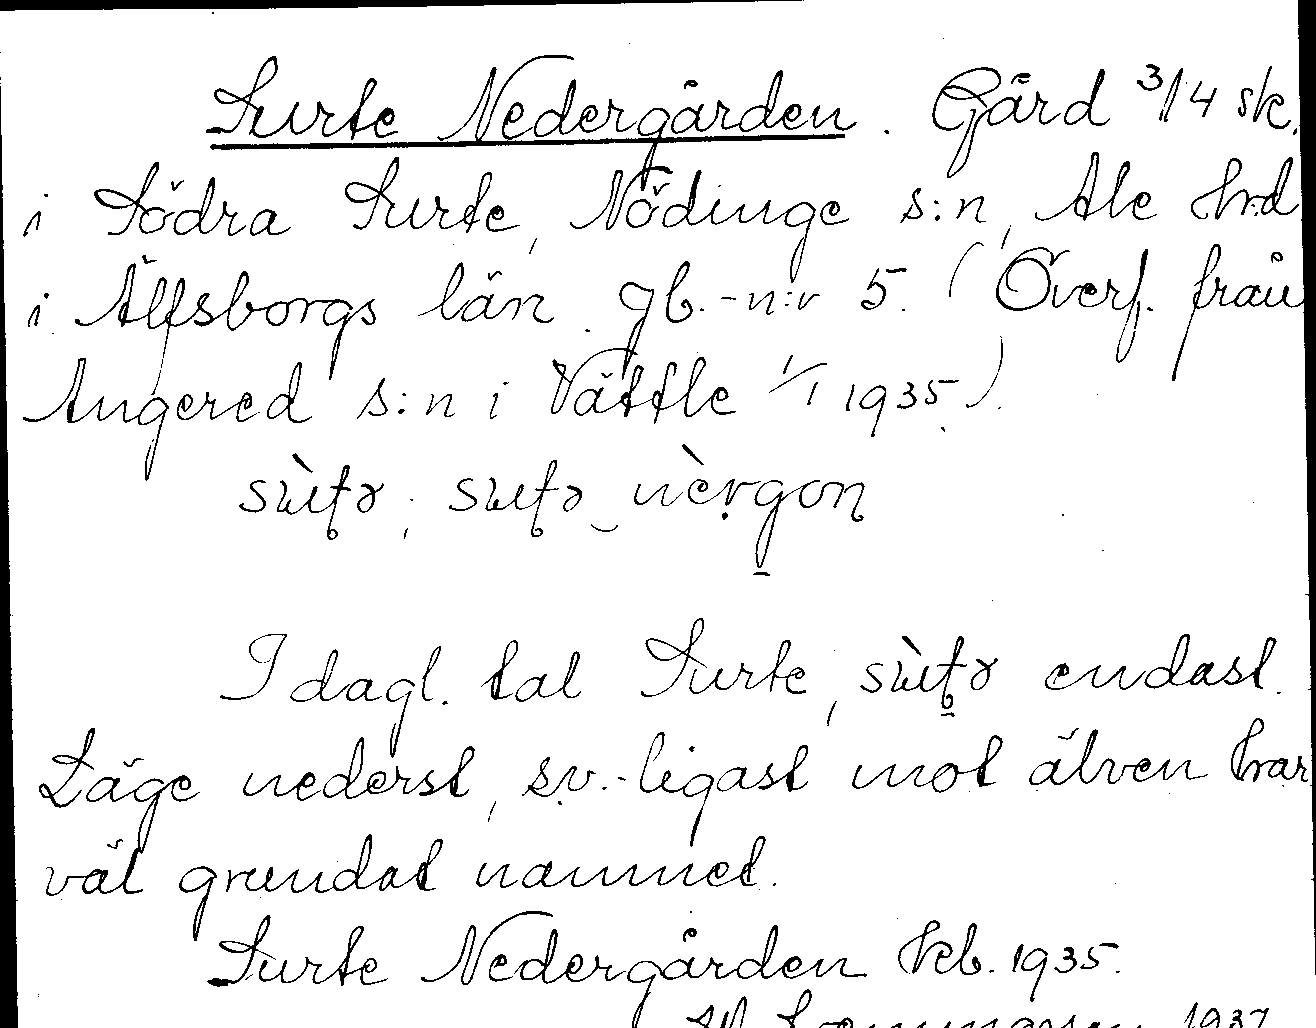 Surte Nedergården. Gård 3/4 sk.
i Södra Surte, Nödinge s:n, Ale hrd
i Älfsborgs län. gb.-n:r 5. (Överf. från
Angered s:n i Vättle 1/1 1935.)
I dagl. tal Surte, endast.
Läge nederst, s.v.-ligast mot älven har
väl grundat namnet.
Surte Nedergården feb. 1935.
1937